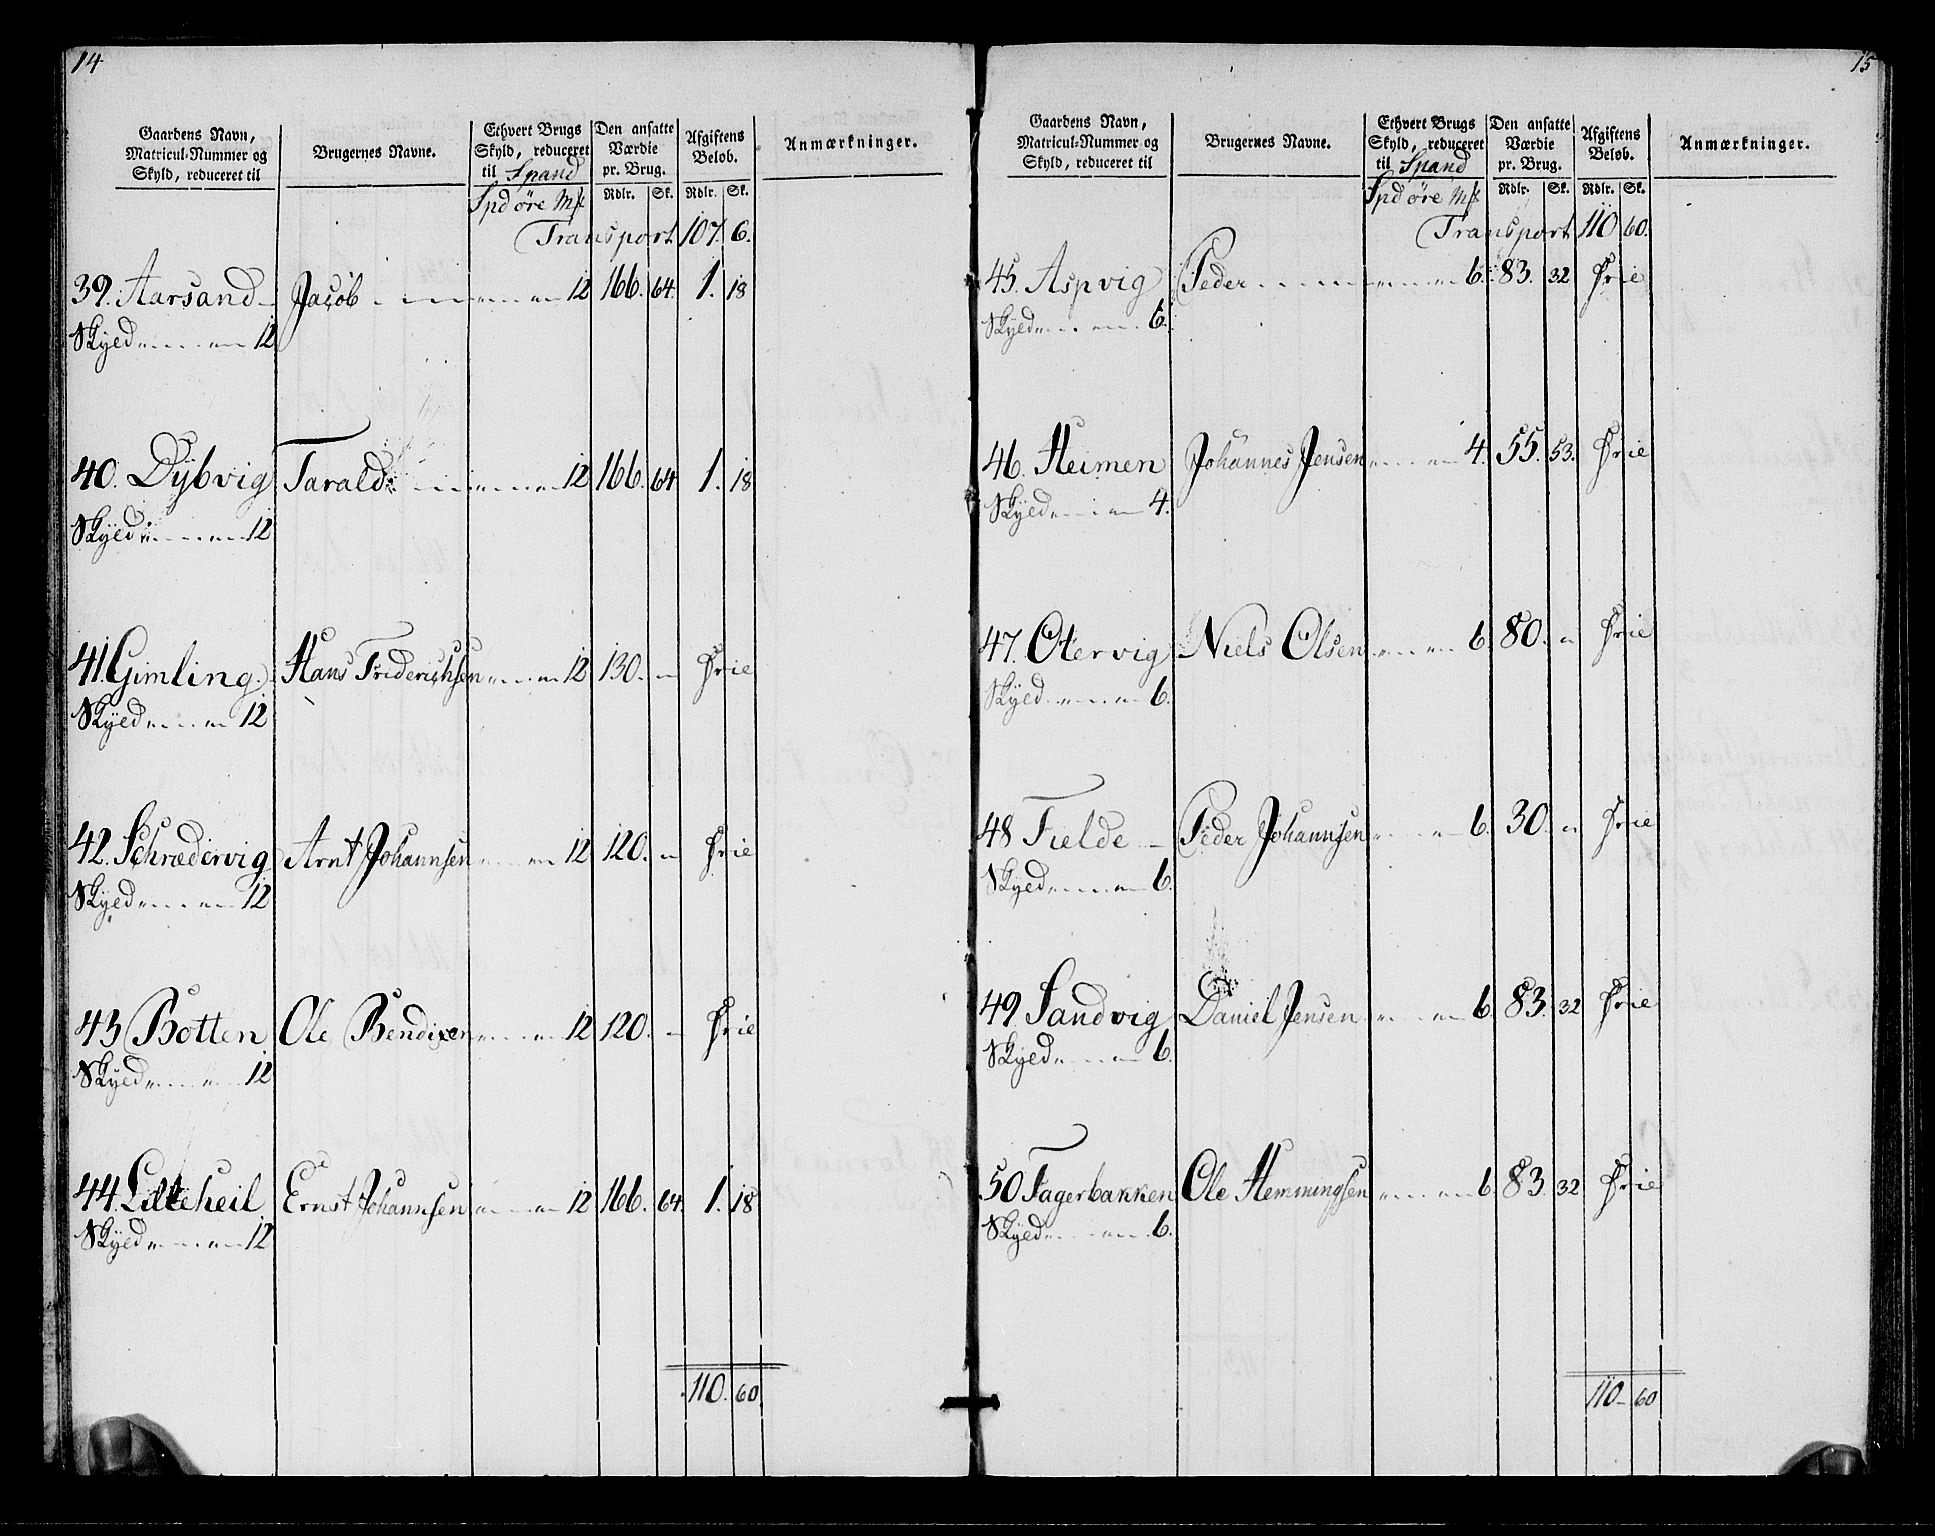 14
Gaardens Navn, Matricul-Nummer og Skyld, reduceret til | Brugernes Navne. | Ethvert Brugs Skyld, reduceret til Spand | Den ansatte Værdie pr. Brug. | Afgiftens Beløb. | Anmærkninger.
Spd øre Mk | Rdlr. | Sk. | Rdlr. | Sk.
Transport 107. 6.
39. Aarsand Jacob 12 166. 64. 1. 18
Skyld 12
40. Dybvig Tarald 12 166. 64 1. 18
Skyld 12
41. Gimling Hans Friderichsen 12 130. " Frie
Skyld 12
42. Schrædervig Arnt Johannsen 12 120. " Frie
Skyld 12
43 Botten Ole Bendixen 12 120. " Frie
Skyld 12
44. Lilleheil Ernst Johannsen 12 166. 64. 1. 18
Skyld 12
110. 60.
15
Gaardens Navn, Matricul-Nummer og Skyld, reduceret til | Brugernes Navne. | Ethvert Brugs Skyld, reduceret til Spand | Den ansatte Værdie pr. Brug. | Afgiftens Beløb. | Anmærkninger.
Spd øre Mk | Rdlr. | Sk. | Rdlr. | Sk.
Transport 110 60.
45. Aspvig Peder 6. 83. 32 Frie
Skyld 6.
46. Heimen Johannes Jensen 4. 55. 53. Frie
Skyld 4.
47. Otervig Niels Olsen 6. 80. " Frie
Skyld 6.
48 Fielde Peder Johannsen 6. 30. " Frie
Skyld 6.
49 Sandvig Daniel Jensen 6. 83. 32 Frie
Skyld 6.
50 Fagerbakken Ole Hemmingsen 6. 83. 32 Frie
Skyld 6.
110 60